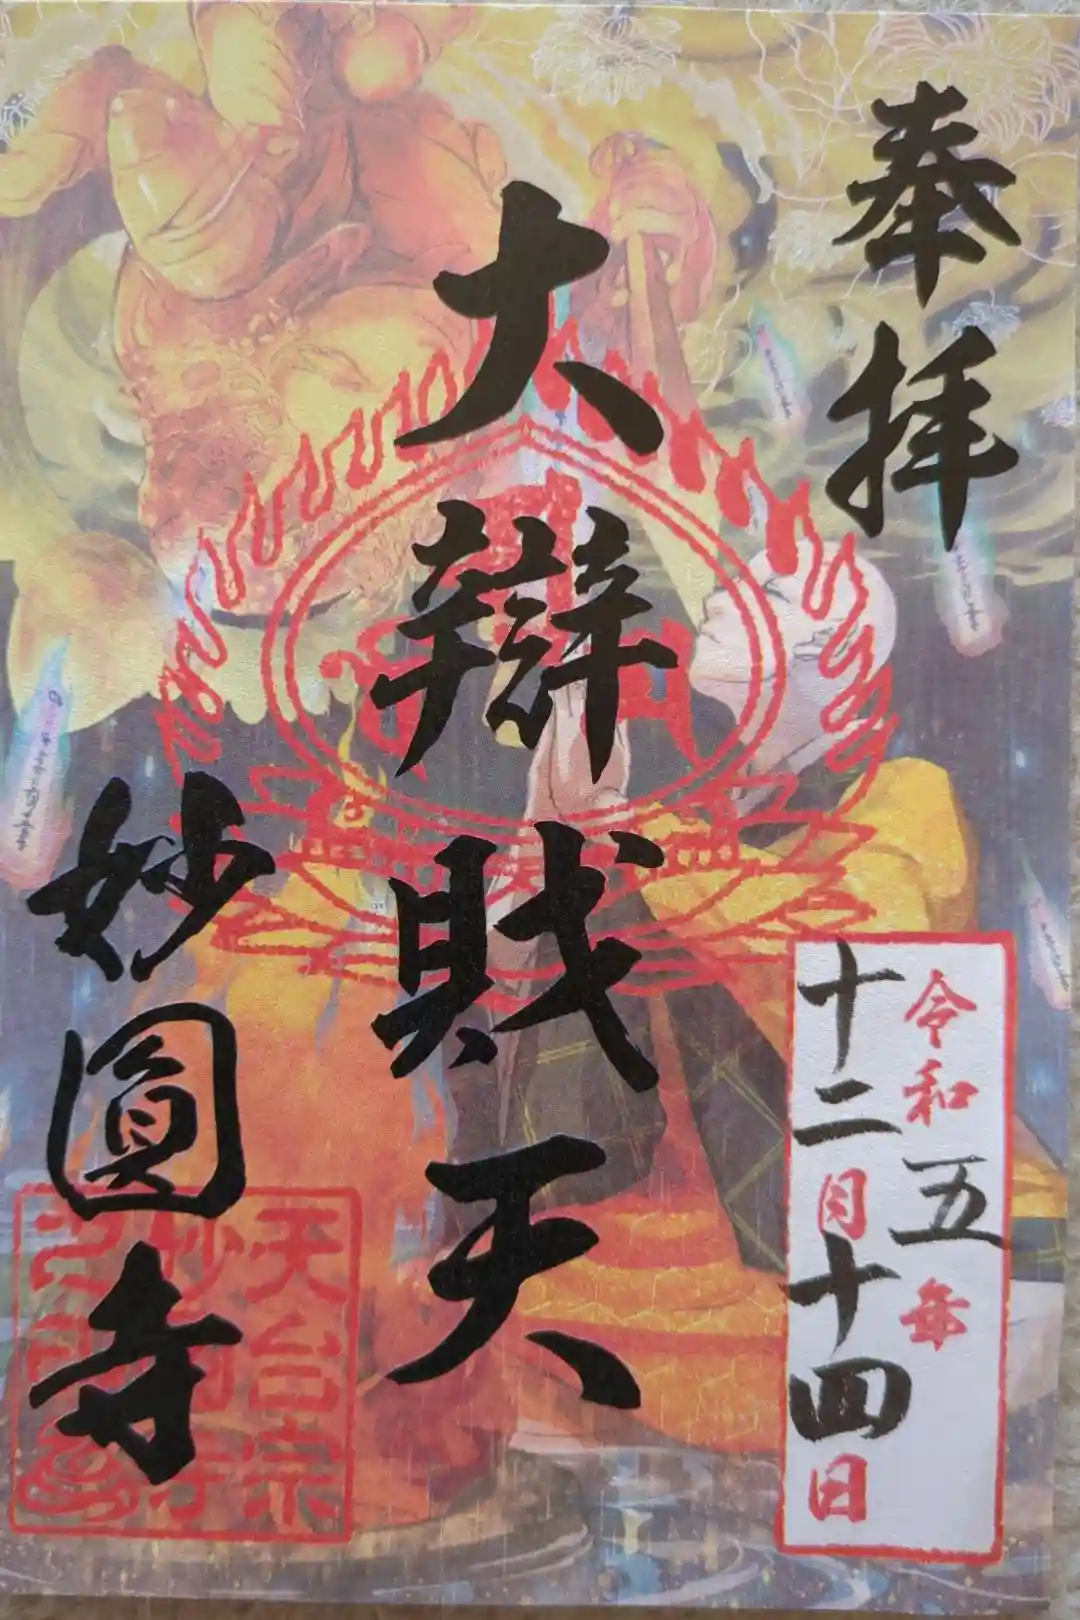 奉拝
大辯財天
妙圓寺
令和五年
十二月十四日
天台宗